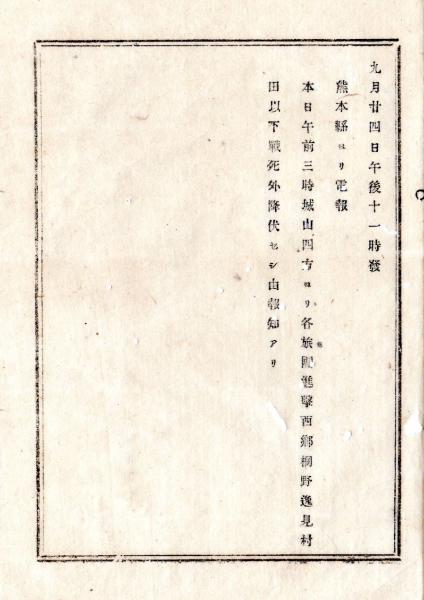 九月廿四日午後十一時發
熊本縣ヨリ電報
本日午前三時城山四方ヨリ各旅團進擊西鄕桐野逸見村
田以下戰死外降伏セシ由報知アリ